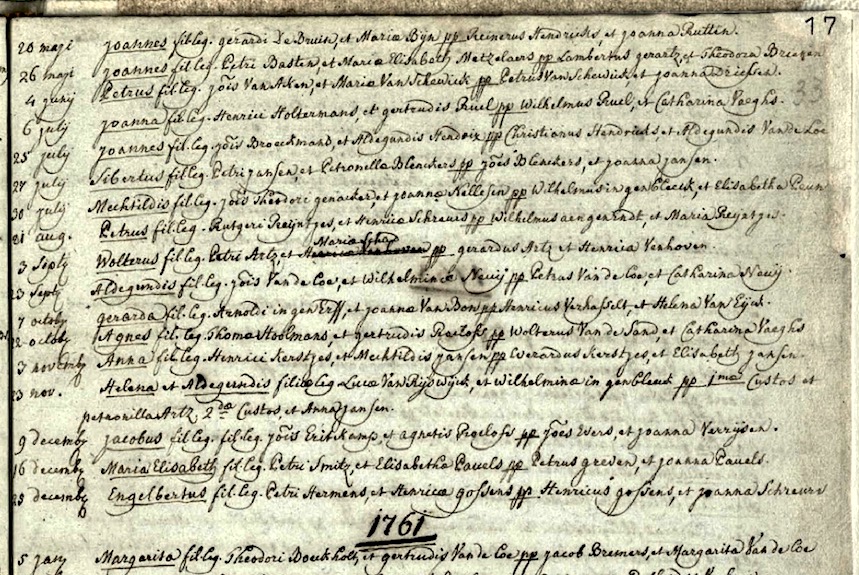 17
20 maji Joannes fil: leg. gerardi De Bruin, et Mariæ Byn pp Reinerus Hendricks, et Joanna Rutten.
26 maji Joannes fil. leg. Petri Basten, et Mariæ Elisabeth Metzelaers pp Lambertus gerartz, et Theodora
4 junij Petrus fil. leg. jois Van Aken, et Mariæ Van Schewick pp Petrus Van Schewick, et joanna Driessen.
6 july Joanna fil. leg. Henrici Holtermans, et gertrudis Ruel pp Wilhelmus Ruel, et Catharina Vaeghs.
25 july Joannes fil. leg. jois Broeckmans, et Aldegundis Hendrix pp Christianus Hendricks et Aldegundis Van de Loe
27 july Sibertus fil. leg. Petri jansen, et Petronella Blenckers pp joes Blenckers, et joanna jansen.
30 july Mechtildis fil. leg. jois Theodori et joannæ Nellesen pp Wilhelmus ingenbleeck, et Elisabetha
21 aug. Petrus fil. leg. Rutgeri Reijntjes, et Henricæ Schreurs pp Wilhelmus aengenendt, et Maria Reyntges.
Maria
3 septb Wolterus fil. leg. Petri Artz et pp gerardus Artz et Henrica Venhoven.
23 septb Aldegundis fil. leg. jois Van de Loe, et Wilhelminæ Neuij pp Petrus Van de Loe, et Catharina Neuij.
7 octob gerarda fil. leg. Arnoldi in gen Erff, et joannæ Van Bon pp Henricus Verhasselt, et Helena Van Eijck.
22 octob Agnes fil. leg. Thomæ Hoolmans, et gertrudis Roeloffs pp Wolterus Van de Sand, et Catharina Vaeghs
3 novemb Anna fil. leg. Henrici Kerstjes, et Mechtildis jansen pp Everardus Kerstjes, et Elisabeth jansen.
23 nov. Helena et Aldegundis filiæ leg. Lucæ Van Rijswijck, et Wilhelminæ in genbleeck pp 1mæ Custos et
petronilla Artz, 2dæ Custos, et Anna jansen.
9 decemb jacobus fil. leg. fil. leg. jois Eritkamp, et agnetis Roeloffs pp joes Evers, et joanna Verrijsen.
16 decemb Maria Elisabeth fil. leg. Petri Smitz, et Elisabethæ Pauels pp Petrus greven, et joanna Pauels.
29 decemb Engelbertus fil. leg. Petri Hermens, et Henricæ gossens pp Henricus gossens, et joanna Schreurs
1761
5 jany Margarita fil. leg. Theodori Boeckholt, et gertrudis Van de Loe pp jacob Bremers, et Margarita Van de Loe